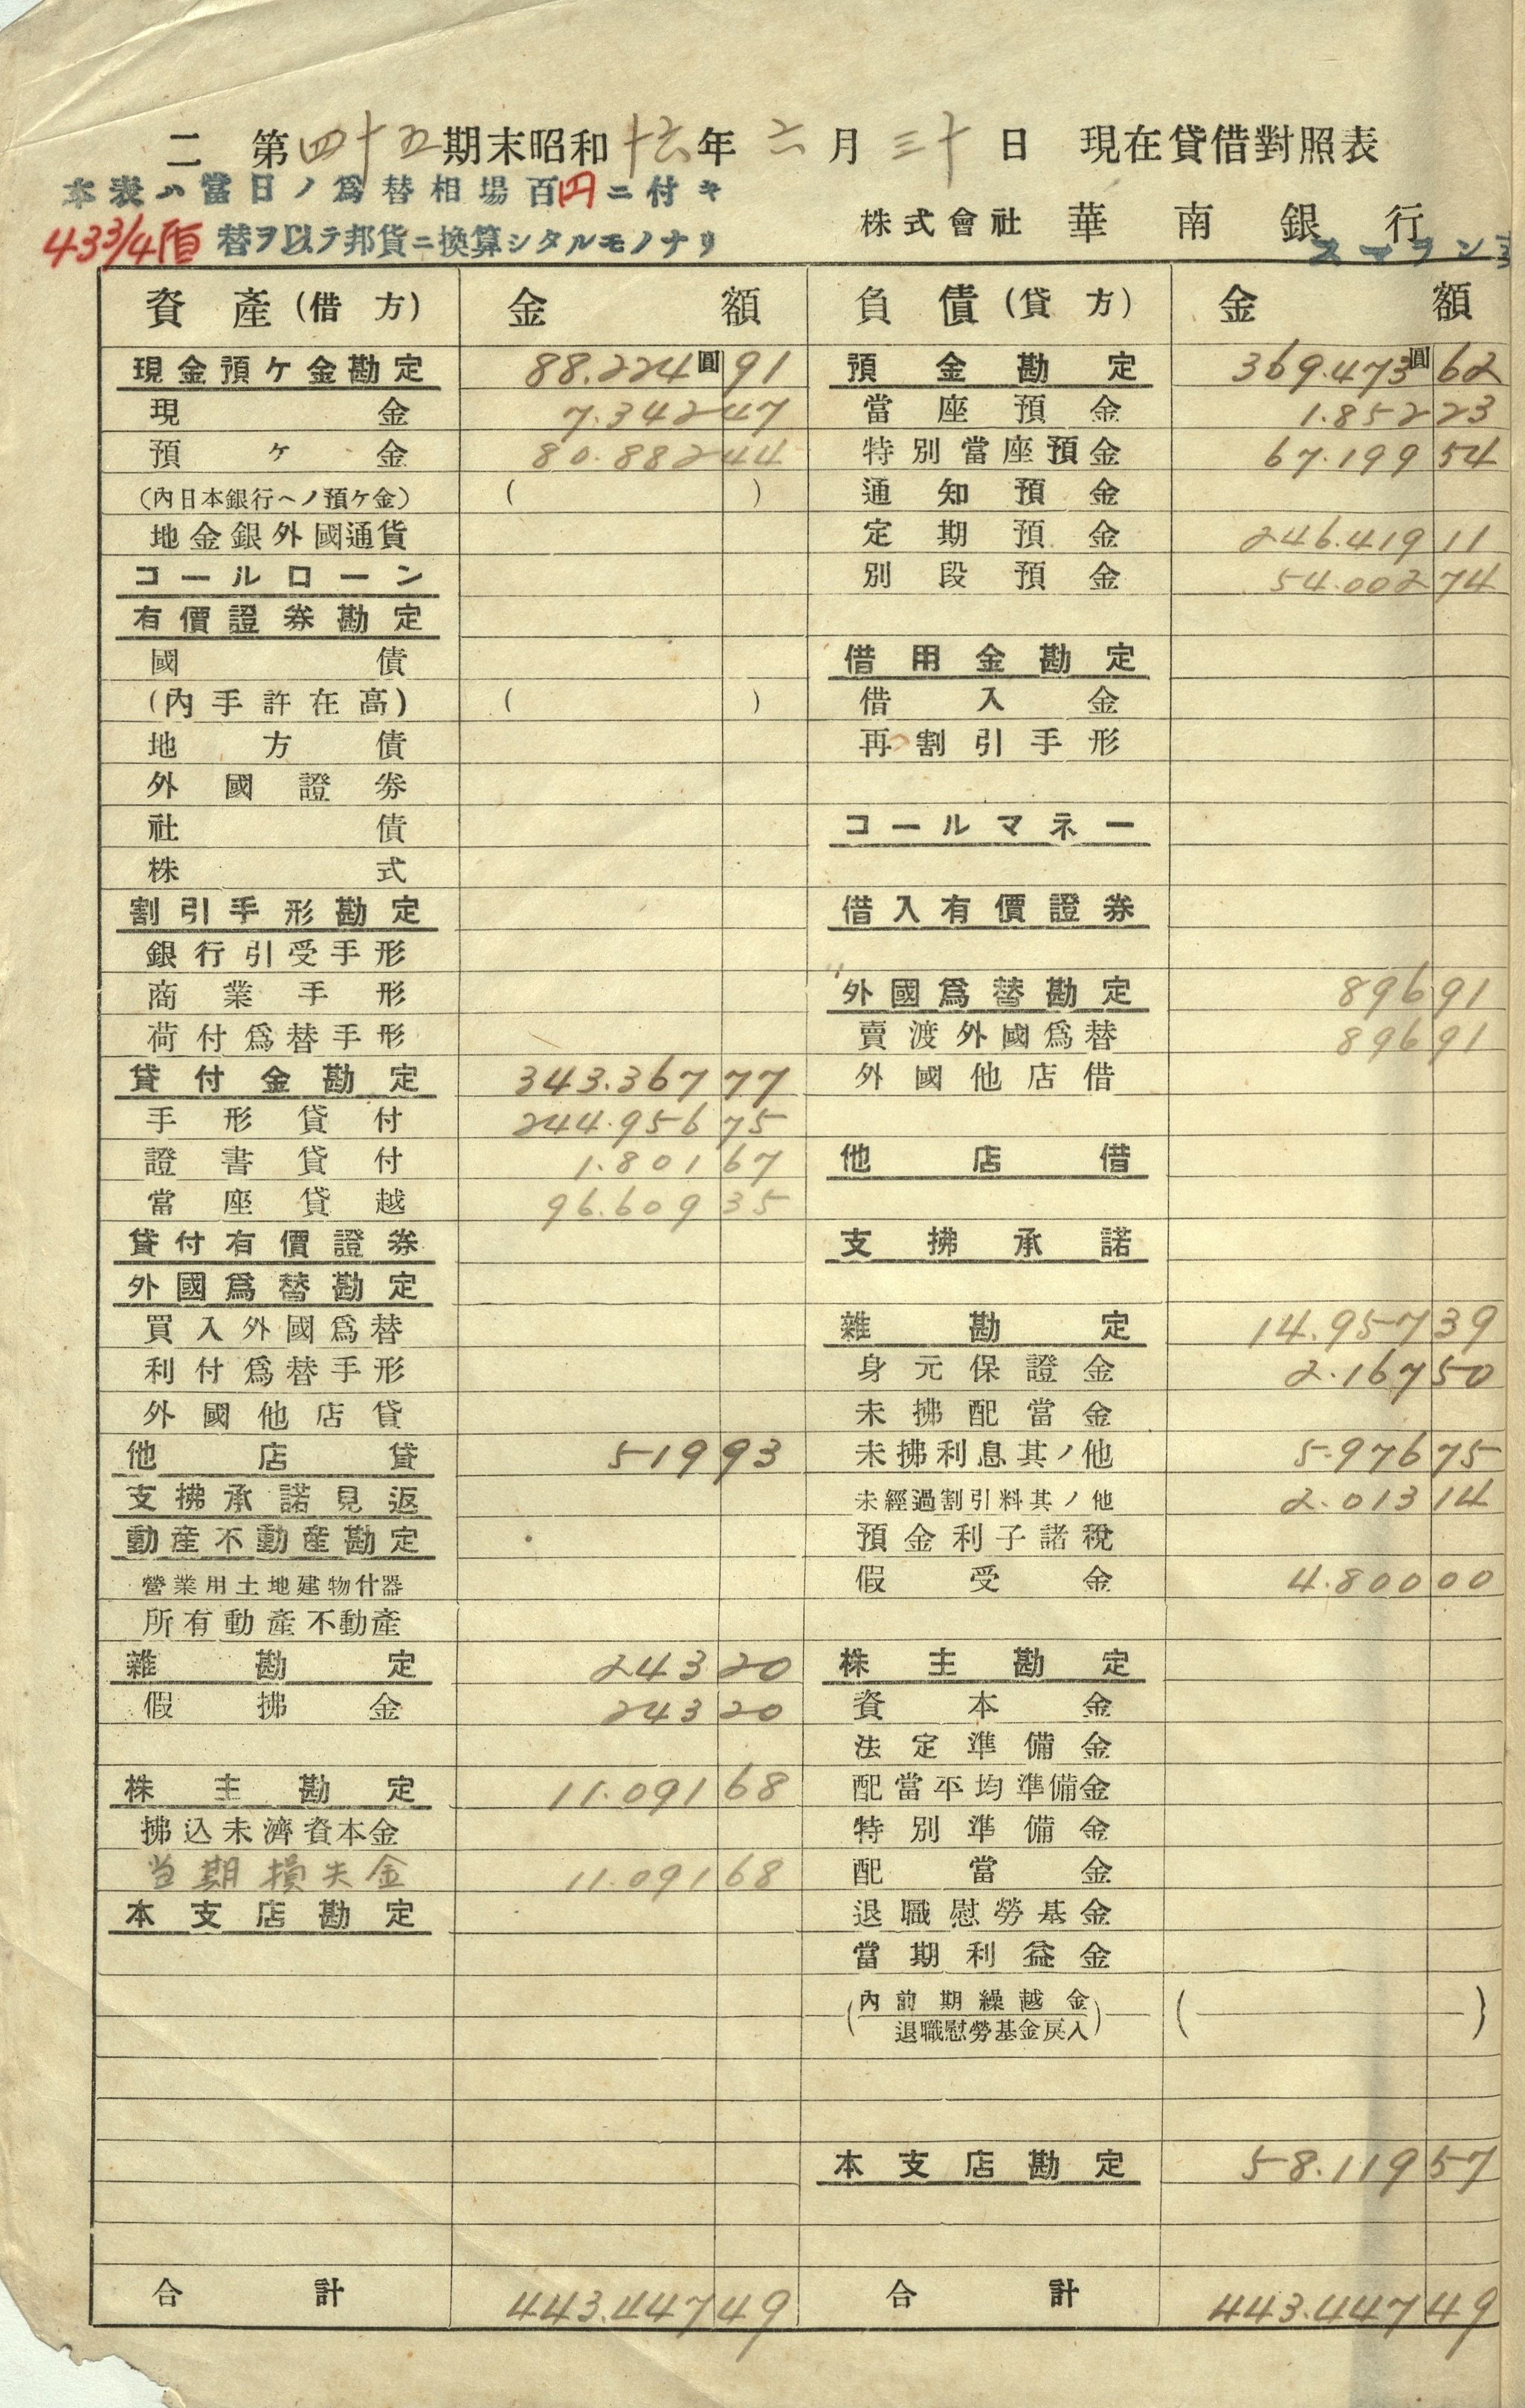 二 第四十五期末昭和十六年六月三十日 現在貸借對照表
本表ハ當日ノ爲替相場百円ニ付キ
43 3/4 替ヲ以テ邦貨ニ換算シタルモノナリ
株式會社 華南銀行
スマラン
資產(借方) 金額 負債(貸方) 金額
現金預ケ金勘定 88.224圓91 預金勘定 369.473圓62
現金 7.342 47 當座預金 1.852 23
預ケ金 80.882 44 特別當座預金 67.199 54
(內日本銀行ヘノ預ケ金) ( ) 通知預金
地金銀外國通貨 定期預金 246.419 11
コールローン 別段預金 54.002 74
有價證券勘定
國債 借用金勘定
(內手許在高) ( ) 借入金
地方債 再割引手形
外國證券
社債 コールマネー
株式
割引手形勘定 借入有價證券
銀行引受手形
商業手形 外國爲替勘定 896 91
荷付爲替手形 賣渡外國爲替 896 91
貸付金勘定 343.367 77 外國他店借
手形貸付 244.956 75
證書貸付 1.801 67 他店借
當座貸越 96.609 35
貸付有價證券 支拂承諾
外國爲替勘定
買入外國爲替 雜勘定 14.957 39
利付爲替手形 身元保證金 2.167 50
外國他店貸 未拂配當金
他店貸 519 93 未拂利息其ノ他 5.976 75
支拂承諾見返 未經過割引料其ノ他 2.013 14
動產不動產勘定 預金利子諸稅
營業用土地建物什器 假受金 4.800 00
所有動產不動產
雜勘定 243 20 株主勘定
假拂金 243 20 資本金
法定準備金
株主勘定 11.091 68 配當平均準備金
拂込未濟資本金 特別準備金
当期損失金 11.091 68 配當金
本支店勘定 退職慰勞基金
當期利益金
(內前期繰越金 ( )
退職慰勞基金戾入)
本支店勘定 58.119 57
合計 443.447 49 合計 443.447 49